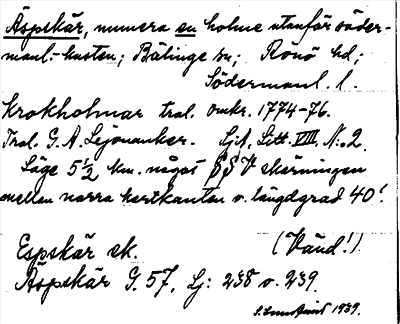 Äspskär, numera en holme utanför söder-
manl.-kusten; Bälinge sn; Rönö hd;
Södermanl. l.
Krokholmar tral. omkr. 1774-76.
Tral. G. A. Lejonanker. Sjk. Litt. VIII. N:o 2.
Läge 5 1/2 km. något S S V skärningen
mellan norra kartkanten o. längdgrad 40'.
Espskär sk. (Vänd!)
Äspskär G. 57, Lj: 238 o. 239.
1939.